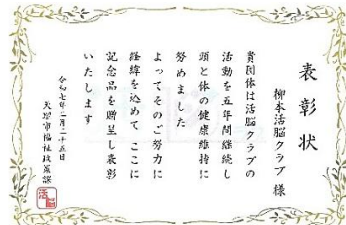 表彰状
柳本活脳クラブ 様
貴団体は活脳クラブの
活動を五年間継続し
頭と体の健康維持に
努めました
よってそのご努力に
敬意を込めて ここに
記念品を贈呈し表彰
いたします
令和七年二月二十五日
天理市福祉政策課
活脳